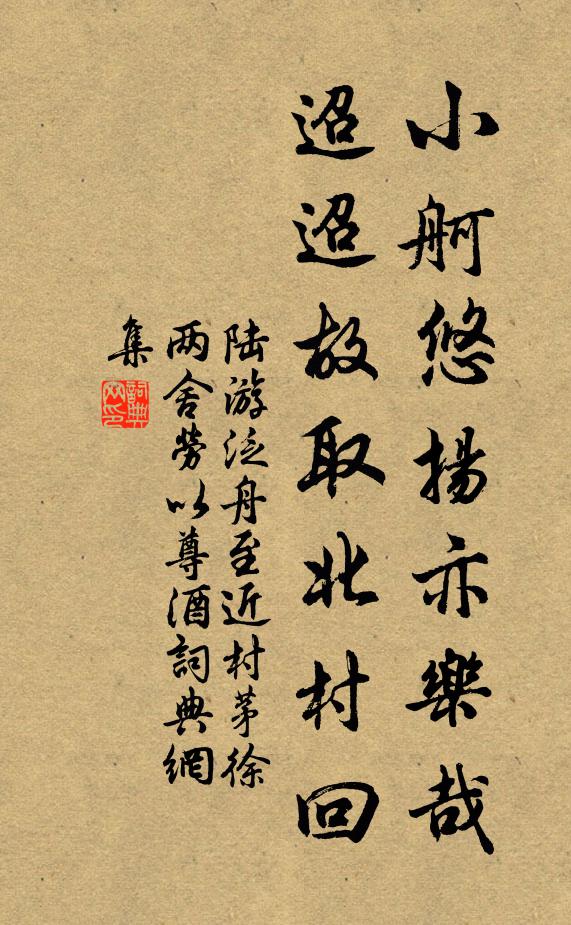 小舸悠揚亦樂哉
迢迢故取北村回
陆游泛舟至近村茅徐
两舍勞以尊酒詞典網
集
詞典网印